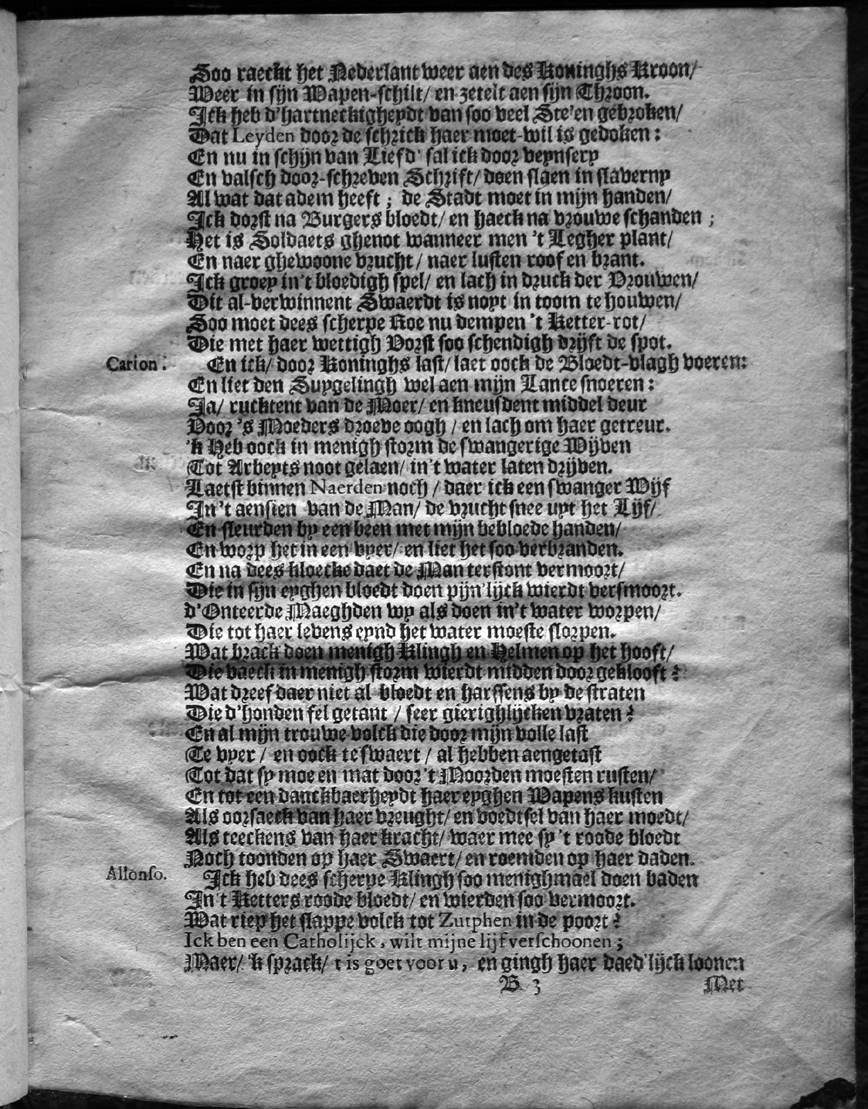 Soo raeckt het Nederlant weer aen des Koninghs Kroon/
Weer in sijn Wapen-schilt/ en zetelt aen sijn Throon.
Ick heb d'hartneckigheydt van soo veel Ste'en gebroken/
Dat Leyden door de schrick haer moet-wil is gedoken:
En nu in schijn van Liefd' sal ick door veynsery
En valsch door-schreven Schrift/ doen slaen in slaverny
Al wat dat adem heeft; de Stadt moet in mijn handen/
Ick dorst na Burgers bloedt/ en haeck na vrouwe schanden;
Het is Soldaets ghenot wanneer men 't Legher plant/
En naer ghewoone vrucht/ naer lusten roof en brant.
Ick groey in't bloedigh spel/ en lach in druck der Vrouwen/
Dit al-verwinnent Swaerdt is noyt in toom te houwen/
Soo moet dees scherpe Roe nu dempen 't Ketter-rot/
Die met haer wettigh Vorst soo schendigh drijft de spot.
Carion: En ick/ door Koninghs last/ laet oock de Bloedt-vlagh voeren:
En liet den Suygelingh wel aen mijn Lance snoeren:
Ja/ rucktent van de Moer/ en kneusdent middel deur
Voor 's Moeders droeve oogh/ en lach om haer getreur.
'k Heb oock in menigh storm de swangerige Wijven
Tot Arbeyts noot gelaen/ in't water laten drijven.
Laetst binnen Naerden noch/ daer ick een swanger Wijf
In't aensien van de Man/ de vrucht snee uyt het Lijf/
En sleurden by een been met mijn bebloede handen/
En worp het in een vyer/ en liet het soo verbranden.
En na dees kloecke daet de Man terstont vermoort/
Die in sijn eyghen bloedt doen pijn'lijck wierdt versmoort.
d'Onteerde Maeghden wy als doen in't water worpen/
Die tot haer levens eynd het water moeste slorpen.
Wat brack doen menigh Klingh en Helmen op het hooft/
Die vaeck in menigh storm wierdt midden door geklooft?
Wat dreef daer niet al bloedt en harssens by de straten
Die d'honden fel getant/ seer gierighlijcken vraten?
En al mijn trouwe volck die door mijn volle last
Te vyer/ en oock te swaert/ al hebben aengetast
Tot dat sy moe en mat door 't Moorden moesten rusten/
En tot een danckbaerheydt haer eyghen Wapens kusten
Als oorsaeck van haer vreught/ en voedtsel van haer moedt/
Als teeckens van haer kracht/ waer mee sy 't roode bloedt
Noch toonden op haer Swaert/ en roemden op haer daden.
Alfonso. Ick heb dees scherpe Klingh soo menighmael doen baden
In't Ketters roode bloedt/ en wierden soo vermoort.
Wat riep het slappe volck tot Zutphen in de poort?
Ick ben een Catholijck, wilt mijne lijf verschoonen;
Maer/ 'k sprack/ t is goet voor u, en gingh haer daed'lijck loonen
B 3 Met